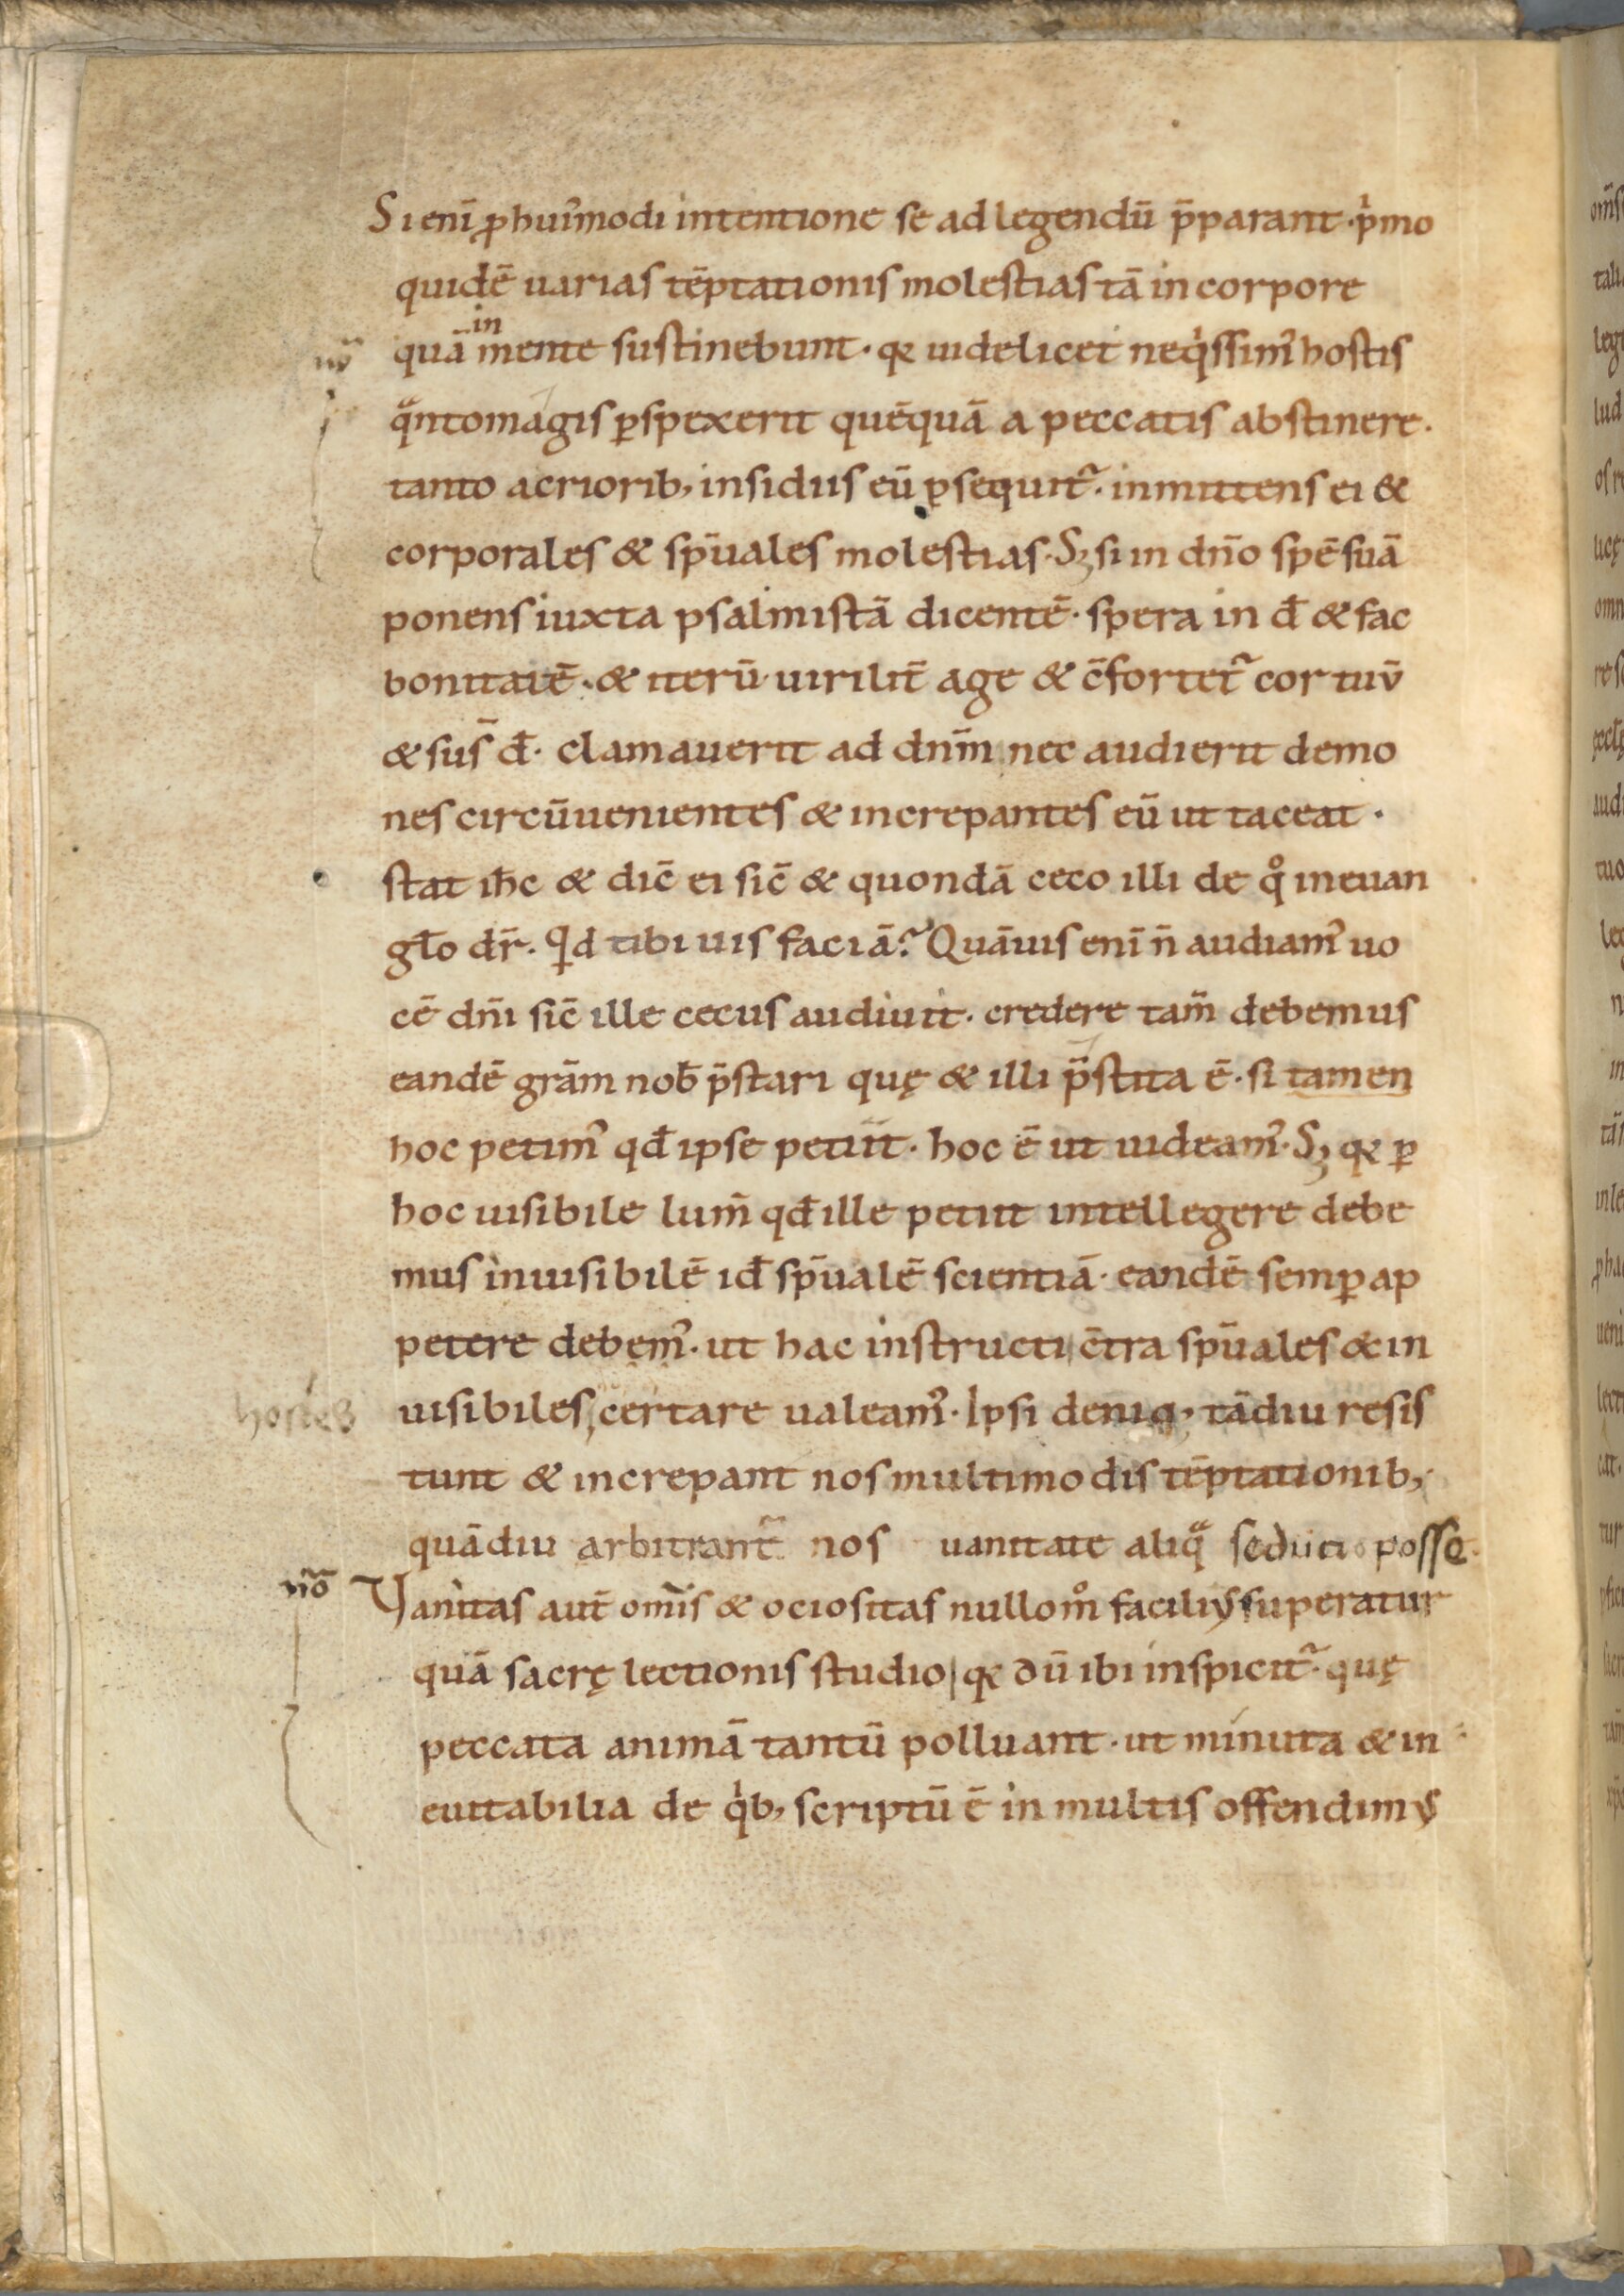 Si eni᷄ ꝓ hui᷒modi intentione se ad legendū p̄parant · pͥmo
quidē uarias tēptationis molestias tā in corpore
quā in mente sustinebunt · qꝛ uidelicet neqͥssim᷒ hostis
qᷓntomagis ꝑspexerit quēquā a peccatis abstinere ·
tanto acriorib; insidiis eū ꝑsequit᷑ · inmittens ei &
corporales & sp̄uales molestias · Sꝫ si in dn̄o spē suā
ponens iuxta psalmistā dicentē · spera in đ & fac
bonitatē · & iterū uirilit̄ age & c̄fortet᷑ cor tuū
& sus̄ đ · clamauerit ad dn̄m nec audierit demo
nes circūuenientes & increpantes eū ut taceat ·
stat ih̄c & dic̄ ei sic̄ & quondā ceco illi de qͦ in euan
gło dr̄ · Qd tibi uis faciā? Quāuis enī n̄ audiam᷒ uo
cē dn̄i sic̄ ille cecus audiuit · credere tam̄ debemus
eandē grām nob̄ p̄stari quę & illi p̄stita ē · si tamen
hoc petim᷒ qđ ipse petiit · hoc ē ut uideam᷒ · Sꝫ qꝛ ꝑ
hoc uisibile lum̄ qđ ille petiit intellegere debe
mus inuisibilē iđ sp̄ualē scientiā · eandē semꝑ ap
petere debem᷒ · ut hac instructi c̄tra sp̄uales & in
hostes uisibiles, certare ualeam᷒ · Ipsi deniq; tādiu resis
tunt & increpant nos multimodis tēptationib;
quādiu arbitrant᷑ nos uanitate aliqᷓ seduci posse ·
nō Vanitas aut̄ om̄is & ociositas nullomͦ facili᷒ superatur
quā sacrę lectionis studio, qꝛ dū ibi inspicit᷑ · quę
peccata animā tantū polluant · ut minuta & in
euitabilia de qͥb; scriptū ē in multis offendim᷒